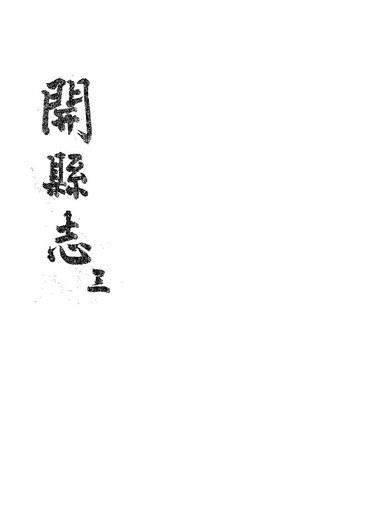 開縣志
三